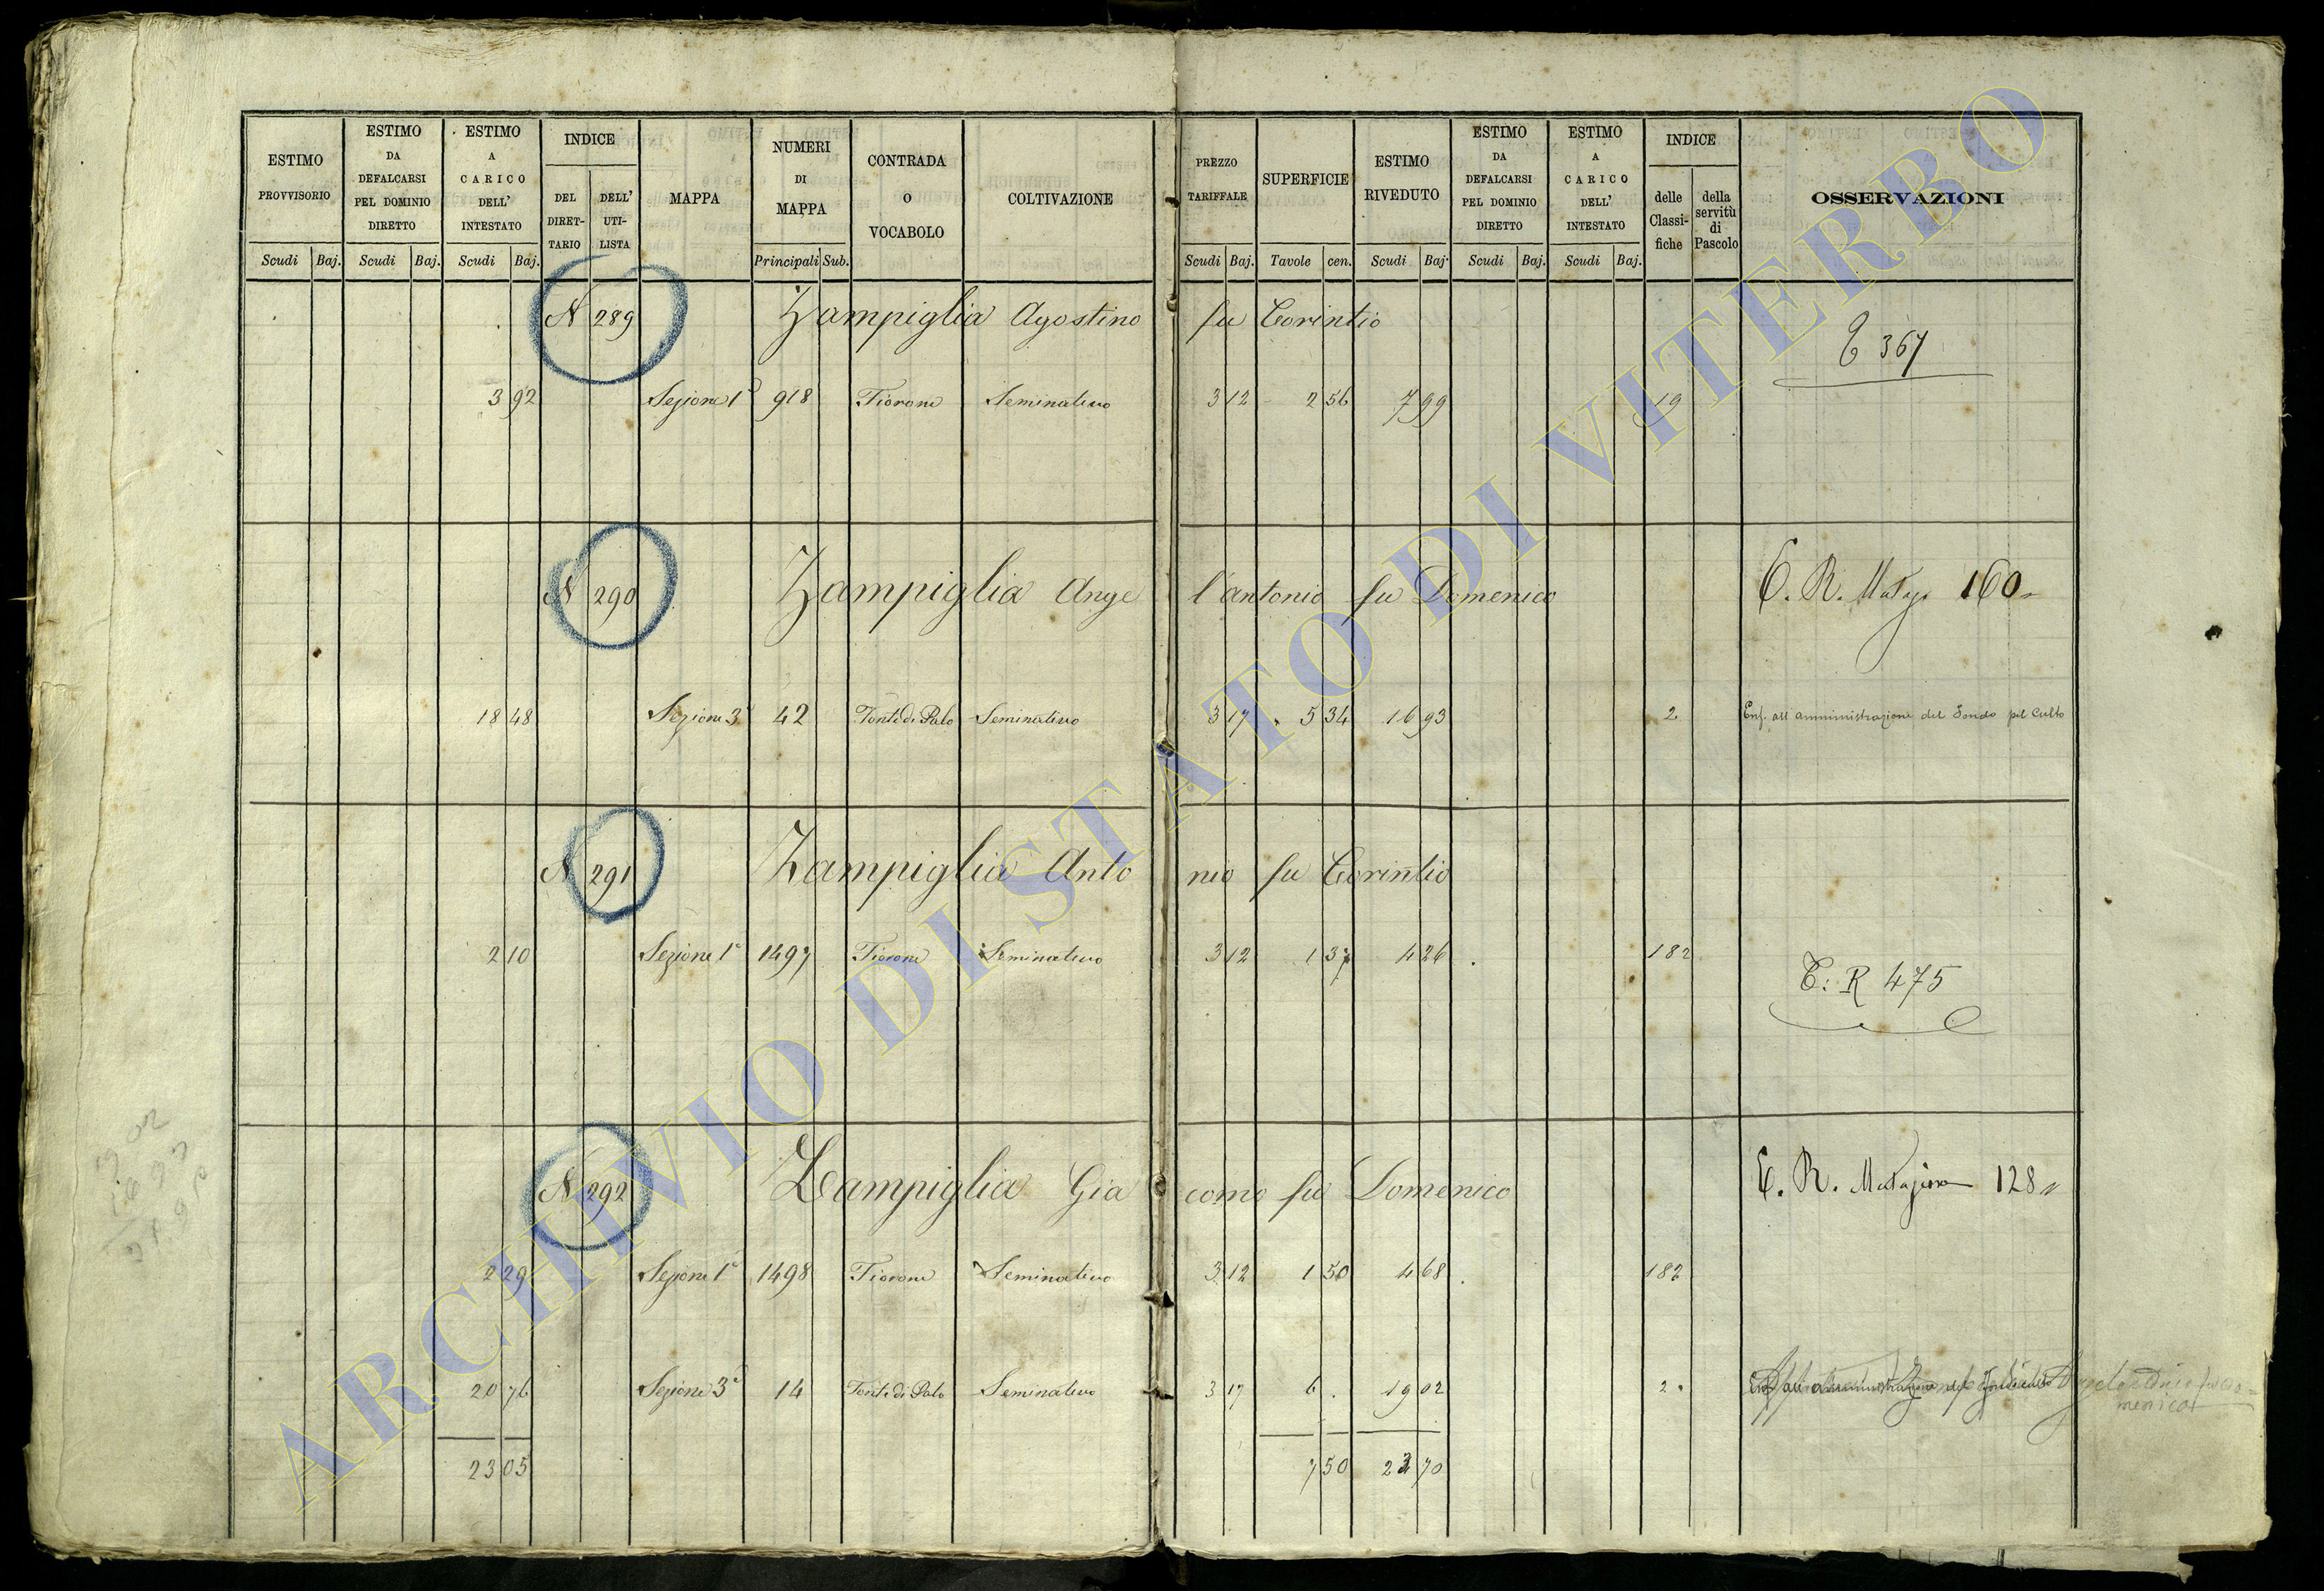 ESTIMO PROVVISORIO Scudi Baj.
ESTIMO DA DEFALCARSI PEL DOMINIO DIRETTO Scudi Baj.
ESTIMO A CARICO DELL' INTESTATO Scudi Baj.
INDICE DEL DIRET-TARIO DELL' UTI-LISTA
MAPPA
NUMERI DI MAPPA Principali Sub.
CONTRADA O VOCABOLO
COLTIVAZIONE
PREZZO TARIFFALE Scudi Baj.
SUPERFICIE Tavole cen.
ESTIMO RIVEDUTO Scudi Baj.
ESTIMO DA DEFALCARSI PEL DOMINIO DIRETTO Scudi Baj.
ESTIMO A CARICO DELL' INTESTATO Scudi Baj.
INDICE delle Classi-fiche della servitù di Pascolo
OSSERVAZIONI
N 289 Zampiglia Agostino fu Corintio
367
3 92 Sezione 1ª 918 Fiorone Seminativo 3 12 2 56 7 99 19
N 290 Zampiglia Ange l'antonio fu Domenico
R. 160
18 48 Sezione 3ª 42 Fonte di Palo Seminativo 3 17 5 34 16 93 2 Enf. all amministrazione del Fondo pel Culto
N 291 Zampiglia Anto nio fu Corintio
2 10 Sezione 1ª 1497 Fiorone Seminativo 3 12 1 37 4 26 182
R 475
N 292 Zampiglia Gia como fu Domenico
R. 128
2 29 Sezione 1ª 1498 Fiorone Seminativo 3 12 1 50 4 68 182
20 76 Sezione 3ª 14 Fonte di Palo Seminativo 3 17 6 . 19 02 2
23 05 7 50 23 70
ARCHIVIO DI STATO DI VITERBO